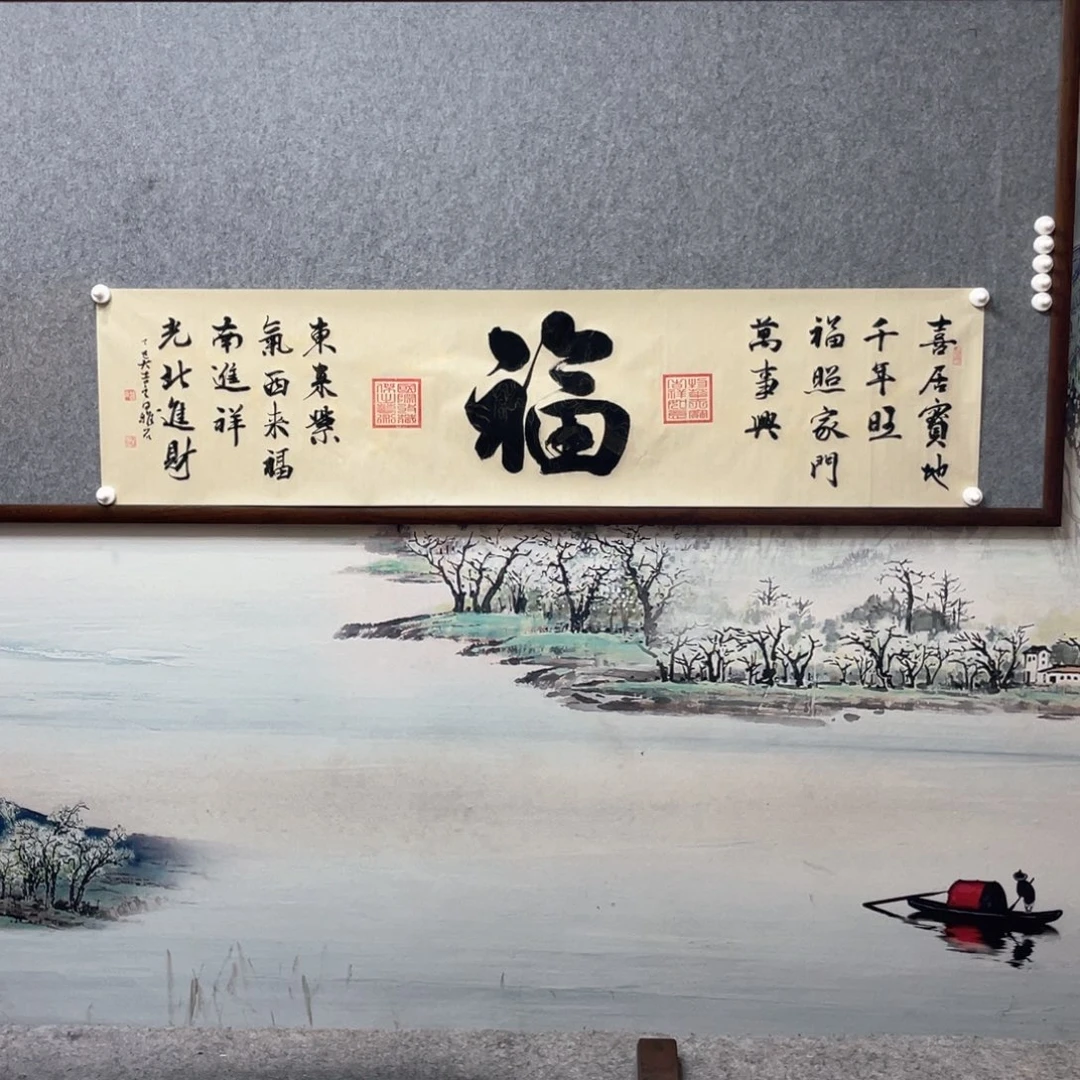 喜居寶地
千年旺
福照家門
萬事興
福
東来紫
氣西来福
南進祥
光北進財